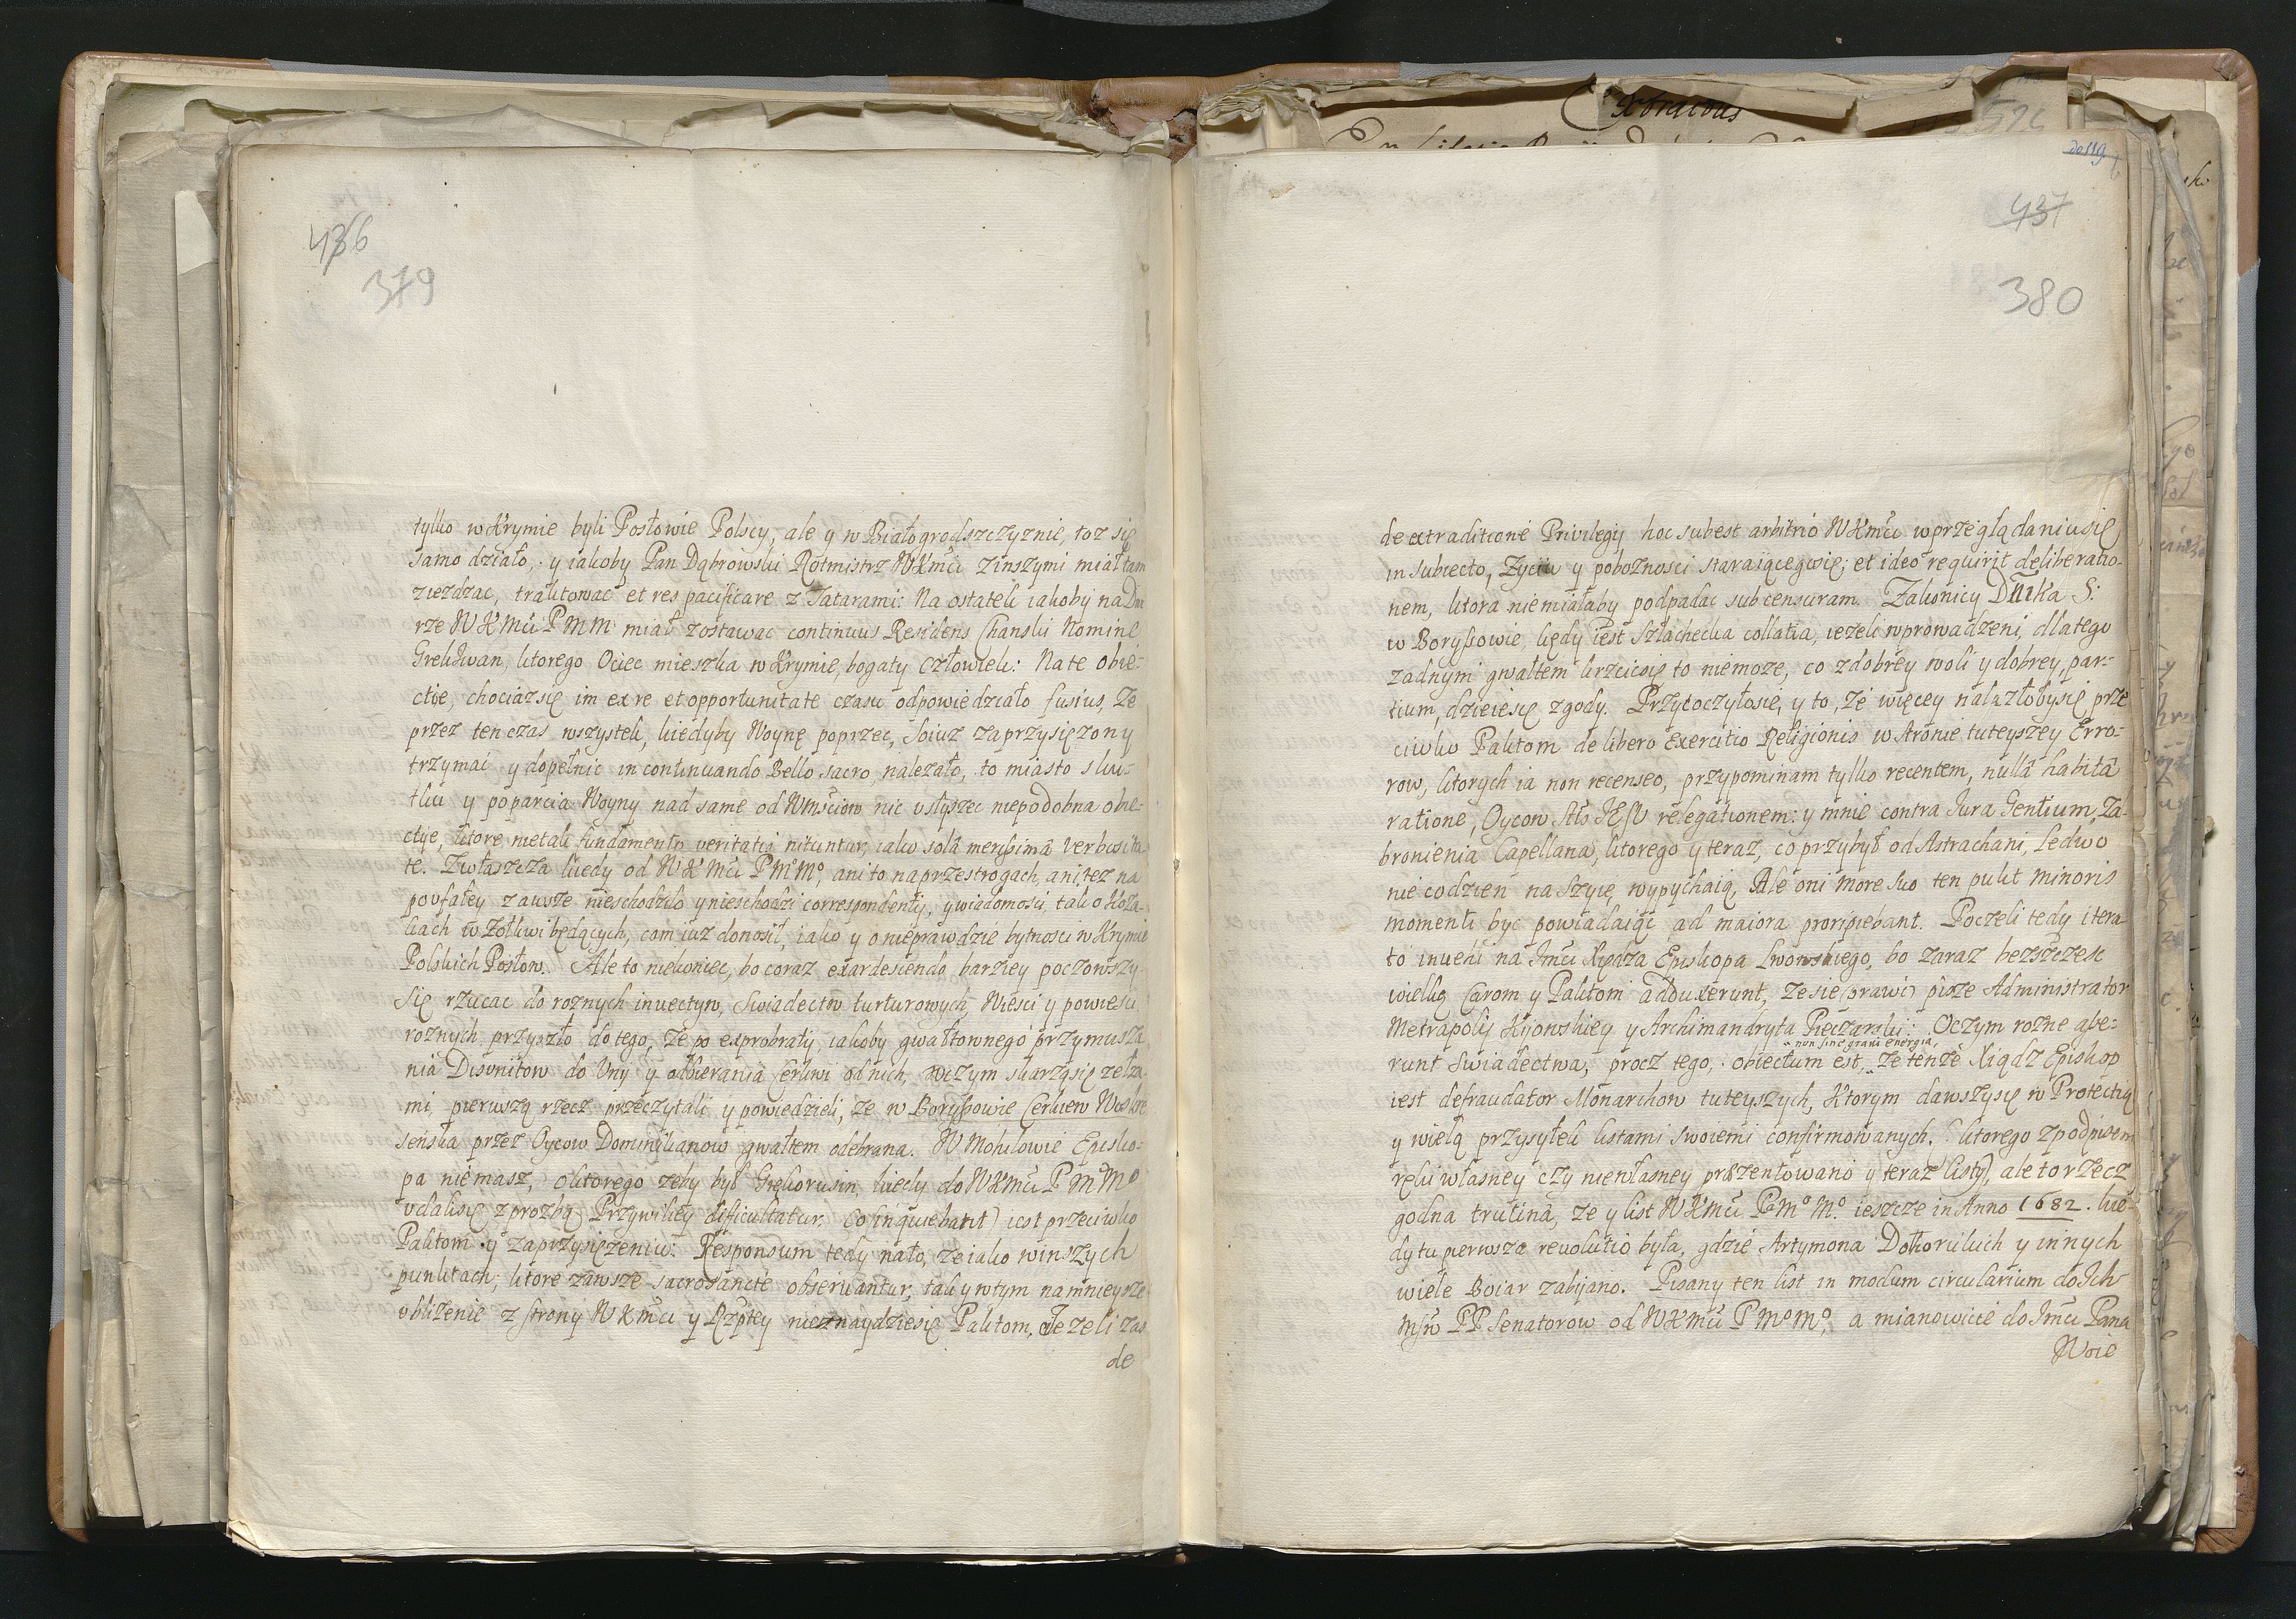 436
379
tylko w Krymie byli Posłowie Polscy, ale y w Białogrodszczyznie, toz się
samo działo, y iakoby Pan Dąbrowski Rotmistrz WKMci zinszymi miał tam
ziezdzac, traktowac et res pacificare z Tatarami: Na ostatek iakoby na Dwo
rze WKMci PMM miał zostawac continuus Residens Chanski Nomine
Grek Iwan, ktorego Ociec mieszka w Krymie, bogaty człowiek: Na te obie-
ctie, chociaz się im ex re et opportunitate czasu odpowiedziało fusius, Ze
przez ten czas wszystek, kiedyby Woynę poprzec, Soiuz zaprzysięzony
trzymac y dopełnic in continuando Bello sacro, nalezało, to miasto sku-
tku y poparcia Woyny nad same od WMsciow nic usłyszec niepodobna obie-
ctye, ktore nietak fundamento veritatis nituntur, iako sola merissima verbosita
te. Zwłaszcza kiedy od WKMci PMM, ani to na przestrogach, ani tez na
poufałey zawsze nieschodziło y nieschodzi correspondentij, y wiadomosci, tak o Koza
kach w Zołkwi będących, com iuz donosił, iako y o nieprawdzie bytnosci w Krymie
Polskich Posłow. Ale to niekoniec, bo coraz exardescendo, barziey poczowszy
się rzucac do roznych inuectyw, Swiadectw turturowych, Wiesci y powiesci
roznych, przyszło do tego, Ze po exprobratij, iakoby gwałtownego przymusza
nia Disunitow do Uny y odbierania Cerkwi od nich, oczym skarzą się ze łza
mi, pierwszą rzecz przeczytali y powiedzieli, Ze w Borysowie Cerkiew Woskre
senska przez Oycow Dominikanow gwałtem odebrana. W Mohilowie Episko-
pa niemasz, o ktorego zeby był Grekorusin, kiedy do WKMci PMM
udalisię z prozbą Przywiley difficultatur. Co (inquiebant) iest przeciwko
Paktom y zaprzysięzeniu: Responsum tedy nato, ze iako winszych
punktach, ktore zawsze sacrosancte obseruantur, tak y w tym namnieysze
ublizenie z strony WKMci y Rzptey nieznaydziesię Paktom, Jezeli zas
de
437
380
de extraditione Privilegij hoc subest arbitrio WKMci w przeglądaniusię
in subiecto, Zyciu y poboznosci staraiącegosię; et ideo requirit deliberatio-
nem, ktora niemiałaby podpadac sub censuram. Zakonicy Dnika S:
w Borysowie, kędy iest Szlachecka collatia, iezeli wprowadzeni, dlatego
zadnym gwałtem krzcicsię to niemoze, co z dobrey woli y dobrey, par-
tium, dzieiesię zgody. Przytoczyłosię, y to, Ze więcey nalazłobysię prze
ciwko Paktom de libero Exercitio Religionis w stronie tuteyszey Erro-
row, ktorych ia non recenseo, przypominam tylko recentem, nulla habita
ratione, Oycow Stis JESU relegationem: y mnie contra Jura Gentium, Za-
bronienia Capellana, ktorego y teraz, co przybył od Astrachani, Ledwo
nie codzien na szyię wypychaią, Ale oni more suo ten pukt minoris
momenti byc powiadaiąc ad maiora proripiebant. Poczeli tedy itera-
to inuehi na Jmci Xiędza Episkopa Lwowskiego, bo zaraz bezszczesc
wielką Carom y Paktom adduxerunt, Ze sie (prawi) pisze Administrator
Metrapoly Kijowskiey y Archimandryta Pieczarski: Oczym rozne afe-
non sine grani energia,
runt Swiadectwa, procz tego, obiectum est, Ze tenze Xiądz Episkop
iest defraudator Monarchow tuteyszych, Ktorym dawszysię w Protectią
y wielą przysyłek listami swoiemi confirmowanych, (ktorego z podpisem
ręki własney czy niewłasney prezentowano y teraz listy), ale to rzecz
godna trutina, ze y list WKMci PMM. ieszcze in Anno 1682. kie-
dy tu pierwsza reuolutio była, gdzie Artymona Dołhorukich y innych
wiele Boiar zabijano. Pisany ten list in modum circularium do Ich
Msciw PP Senatorow od WKMci PMM, a mianowicie do Jmci Pana
Woie